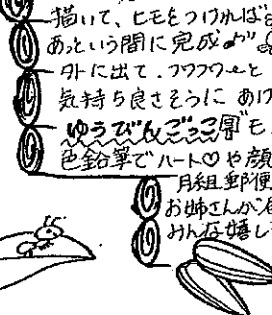 描いて、ヒモをつければ
あっという間に完成
外に出て、フワフワ〜と
気持ち良さそうに あげ
ゆうびんごっこ も
色鉛筆でハート♡や顔
月組 郵便
お姉さんが
みんな嬉し